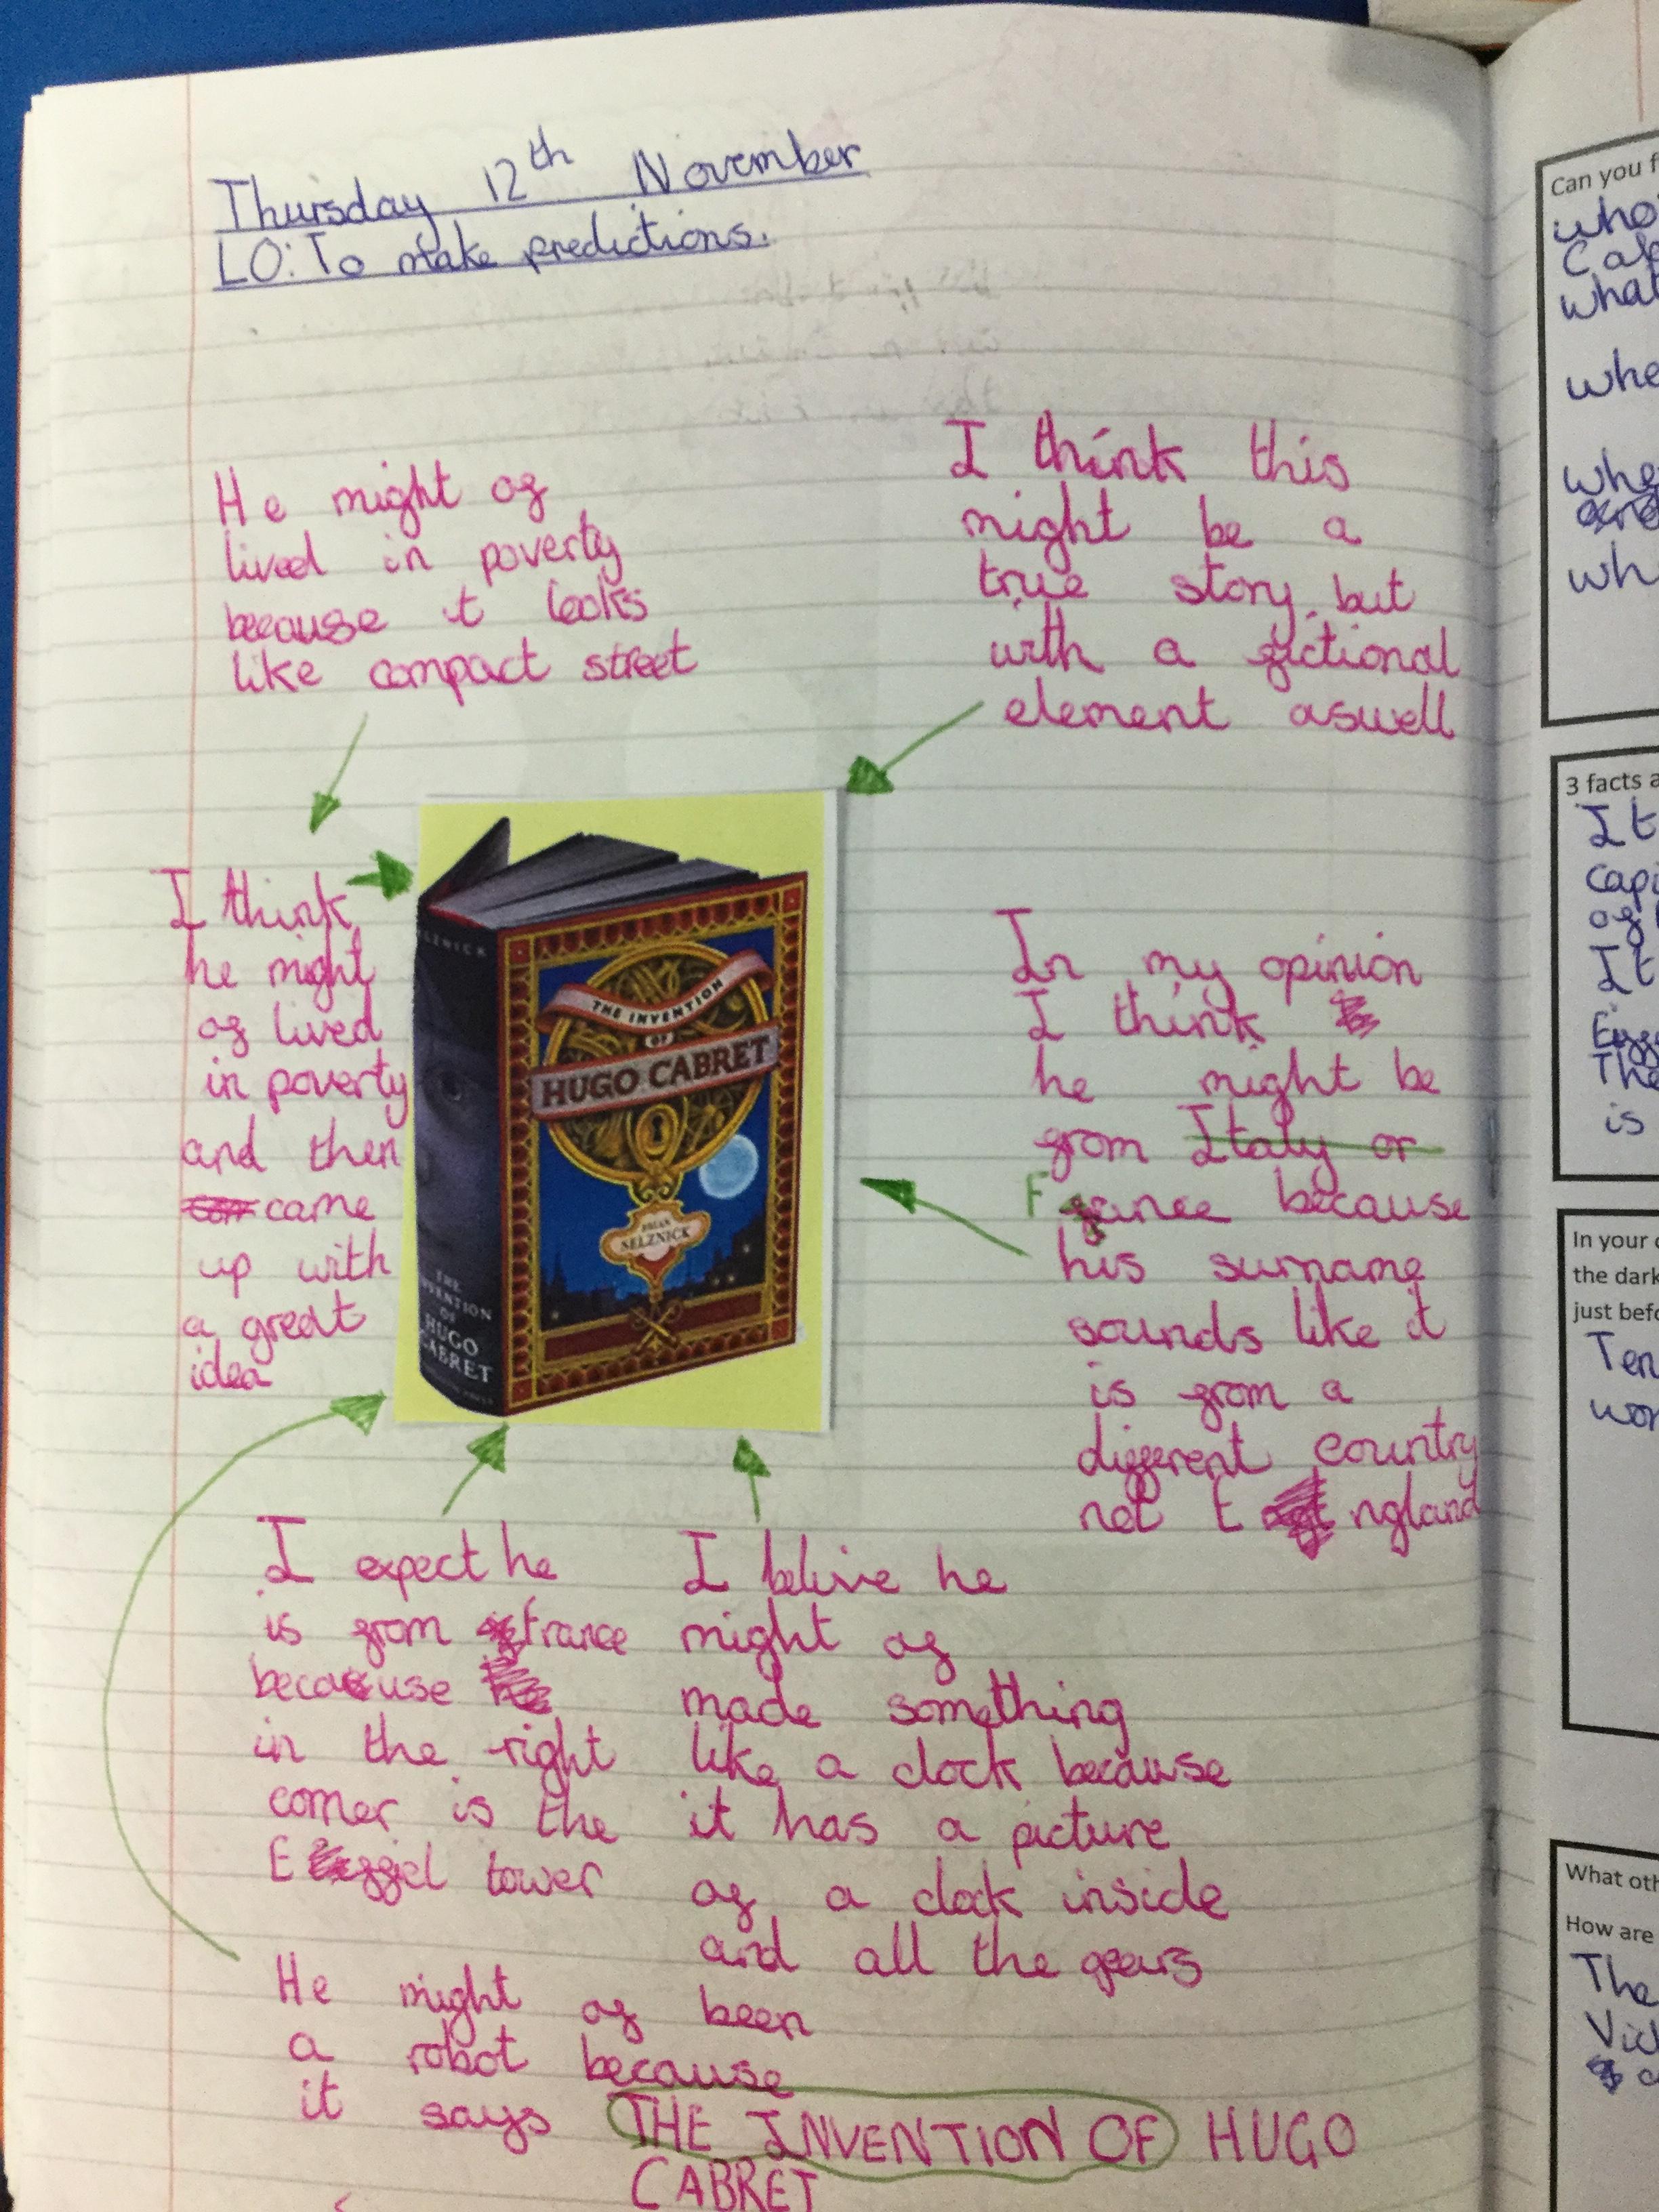 Thursday 12th November
LO: To make predictions.
He might of
lived in poverty
because it looks
like compact street
I think this
might be a
true story, but
with a fictional
element aswell
I think
he might
of lived
in poverty
and then
came
up with
a great
idea
SELZNICK
THE
INVENTION
OF
HUGO
CABRET
THE INVENTION
OF
HUGO CABRET
BRIAN
SELZNICK
In my opinion
I think
he might be
from Italy or
France because
his surname
sounds like it
is from a
different country
not England
I expect he
is from France
because
in the right
corner is the
Eiffel tower
I belive he
might of
made something
like a clock because
it has a picture
of a clock inside
and all the gears
He might of been
a robot because
it says THE INVENTION OF HUGO
CABRET
Can you
who
what
3 facts
It
of
It
The
is
In your
the dark
just
What
How are
The